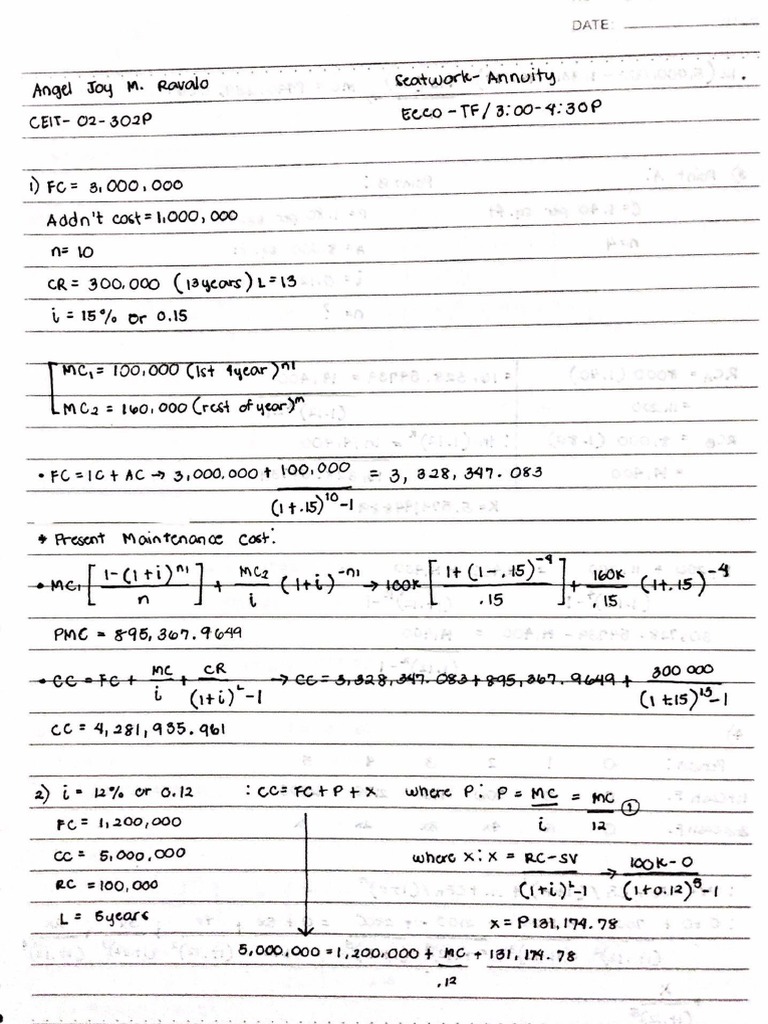 DATE:
Angel Joy M. Ravalo Seatwork- Annuity
CEIT- 02-302P ECCO -TF/ 3:00-4:30P
1) FC= 3,000,000
Addn't cost=1,000,000
n= 10
CR= 300,000 (13years) L=13
i = 15% or 0.15
MC₁= 100,000 (1st 4year)ⁿ¹
MC₂ = 160,000 (rest of year)ᵐ
• FC=IC+AC → 3,000,000+ 100,000/(1+.15)¹⁰-1 = 3, 328, 347.083
* Present Maintenance Cost:
• MC₁[1-(1+i)ⁿ¹/n] + MC₂/i (1+i)⁻ⁿ¹ → 100k[1+(1-.15)⁻⁴/.15] + 160k/.15 (1+.15)⁻⁴
PMC = 895,367.9649
• CC=FC+ MC/i + CR/(1+i)ᴸ-1 → CC=3,328,347.083+895,367.9649+ 300 000/(1+15)¹³-1
CC= 4,281,935.961
2) i = 12% or 0.12 :CC=FC+P+X where P: P= MC/i = MC/12 ①
FC= 1,200,000
CC= 5,000,000 where x: x = RC-SV/(1+i)ᴸ-1 → 100K-0/(1+0.12)⁵-1
RC =100,000
L = 5years x=P131,174.78
5,000,000=1,200,000+ MC/.12 + 131,174.78